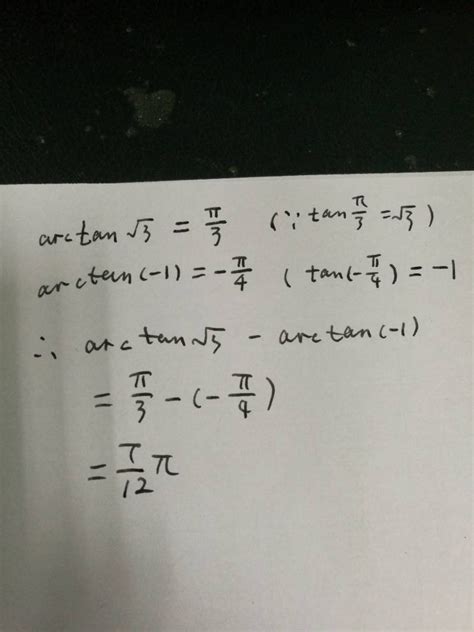 arctan √3 = π/3 (∵ tan π/3 = √3)
arctan(-1) = -π/4 (tan(-π/4) = -1
∴ arctan√3 - arctan(-1)
= π/3 - (-π/4)
= 7/12 π